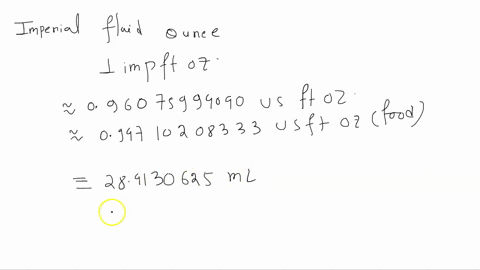 Imperial fluid ounce
1 imp ft oz.
≈ 0.96075994090 us ft oz.
≈ 0.94710208333 us ft oz (food)
≡ 28.4130625 mL